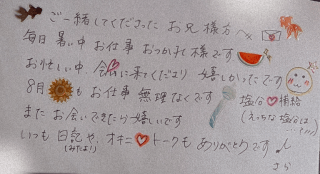 ご一緒してくださった お兄様方へ
毎日 暑い中 お仕事 おつかれ様です
お忙しい中 会いに来てくださり 嬉しかったです
8月も お仕事 無理なくです
塩分 補給
(えっちな 塩分は
またお会いできたら嬉しいです
いつも 日記や オキニトークも ありがとうです
(みたよ!)
さら